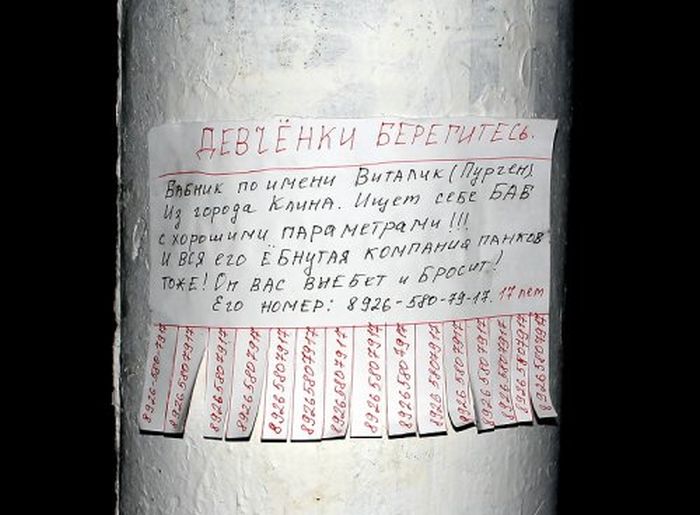 ДЕВЧЁНКИ БЕРЕГИТЕСЬ.
Бабник по имени Виталик (Пурген)
Из города Клина. Ищет себе БАБ
с хорошими параметрами!!!
И вся его ёбнутая компания панков
тоже! Он вас выебет и бросит!
Его номер: 8926-580-79-17. 17 лет
8926-580-7917
89265807917
89265807917
89265807917
89265807917
89265807917
89265807917
89265807917
89265807917
89265807917
89265807917
89265807917
89265807917
89265807917
89265807917